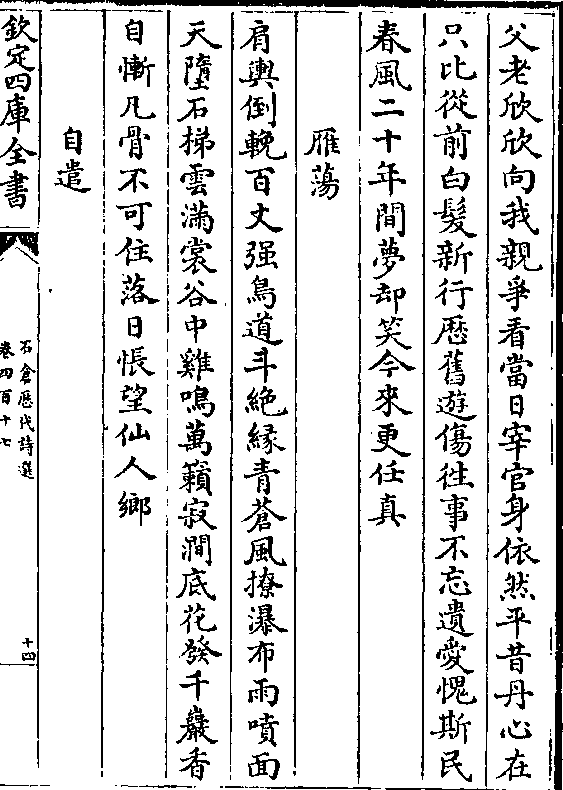 父老欣欣向我親爭看當日宰官身依然平昔丹心在
只比從前白髮新行歴舊遊傷徃事不忘遺愛愧斯民
春風二十年間夢却笑今來更任真
雁蕩
肩輿倒輓百丈强鳥道斗絶縁青蒼風撩瀑布雨噴面
天墮石梯雲滿裳谷中雞鳴萬籟寂澗底花發千巖香
自慚凡骨不可住落日悵望仙人鄉
自遣
欽定四庫全書
石倉歴代詩選
卷四百十七
十四